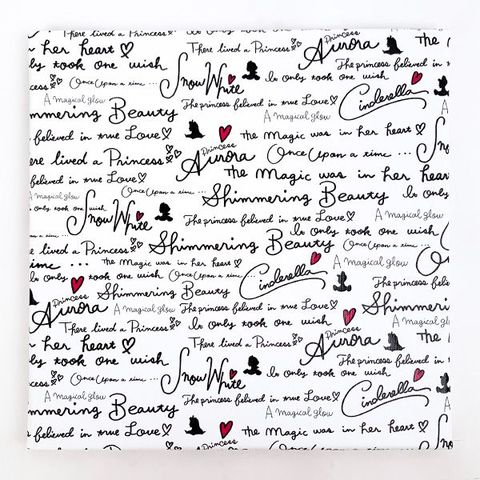 There lived a Princess Princess Aurora the
in her heart The princess believed in
ly took one wish Snow White Is only took one wish
Once Upon a time ... The princess believed in true Love Cinderella
A magical glow A magical glow
mmering Beauty There lived a Princess Shimmeri
believed in true Love the Magic was in her heart
ere lived a Princess Princess Aurora Once Upon a time ...
e princess believed in the Magic was in her hear
A magical glow Once Upon a time ... Shimmering Beauty Is on
only took one wish Snow White The princess believed in true Love A magical
There lived a Princess Shimmering Beauty Once Upon a time ...
time ... the Magic was in her heart A magical glow
ly took one wish Once Upon a time ... Cinderella
Princess Aurora Shimmering Beauty There lived a Princess The princess
A magical glow The princess believed in true Love Princess Shimmeri
There lived a Princess Is only took one wish Aurora A magical glow
n her heart The princess believed in
ly took one wish There lived a Princess the
Once Upon a time ... Snow White Is only took one wish
A magical glow The princess believed in true Love Cinderella
mmering Beauty A magical glow
believed in true Love Princess the Magic was in her heart